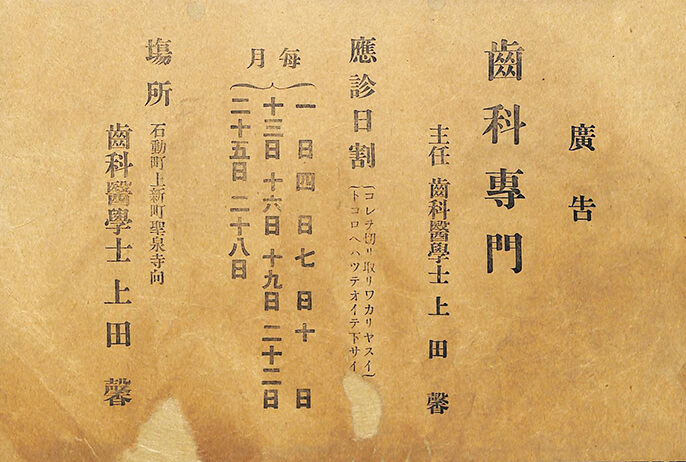 廣告
齒科專門
主任 齒科醫學士 上田馨
應診日割
(コレヲ切リ取リワカリヤスイ
トコロヘハツテオイテ下サイ)
每月
一日 四日 七日 十日
十三日 十六日 十九日 二十二日
二十五日 二十八日
場所
石動町上新町聖泉寺向
齒科醫學士 上田馨